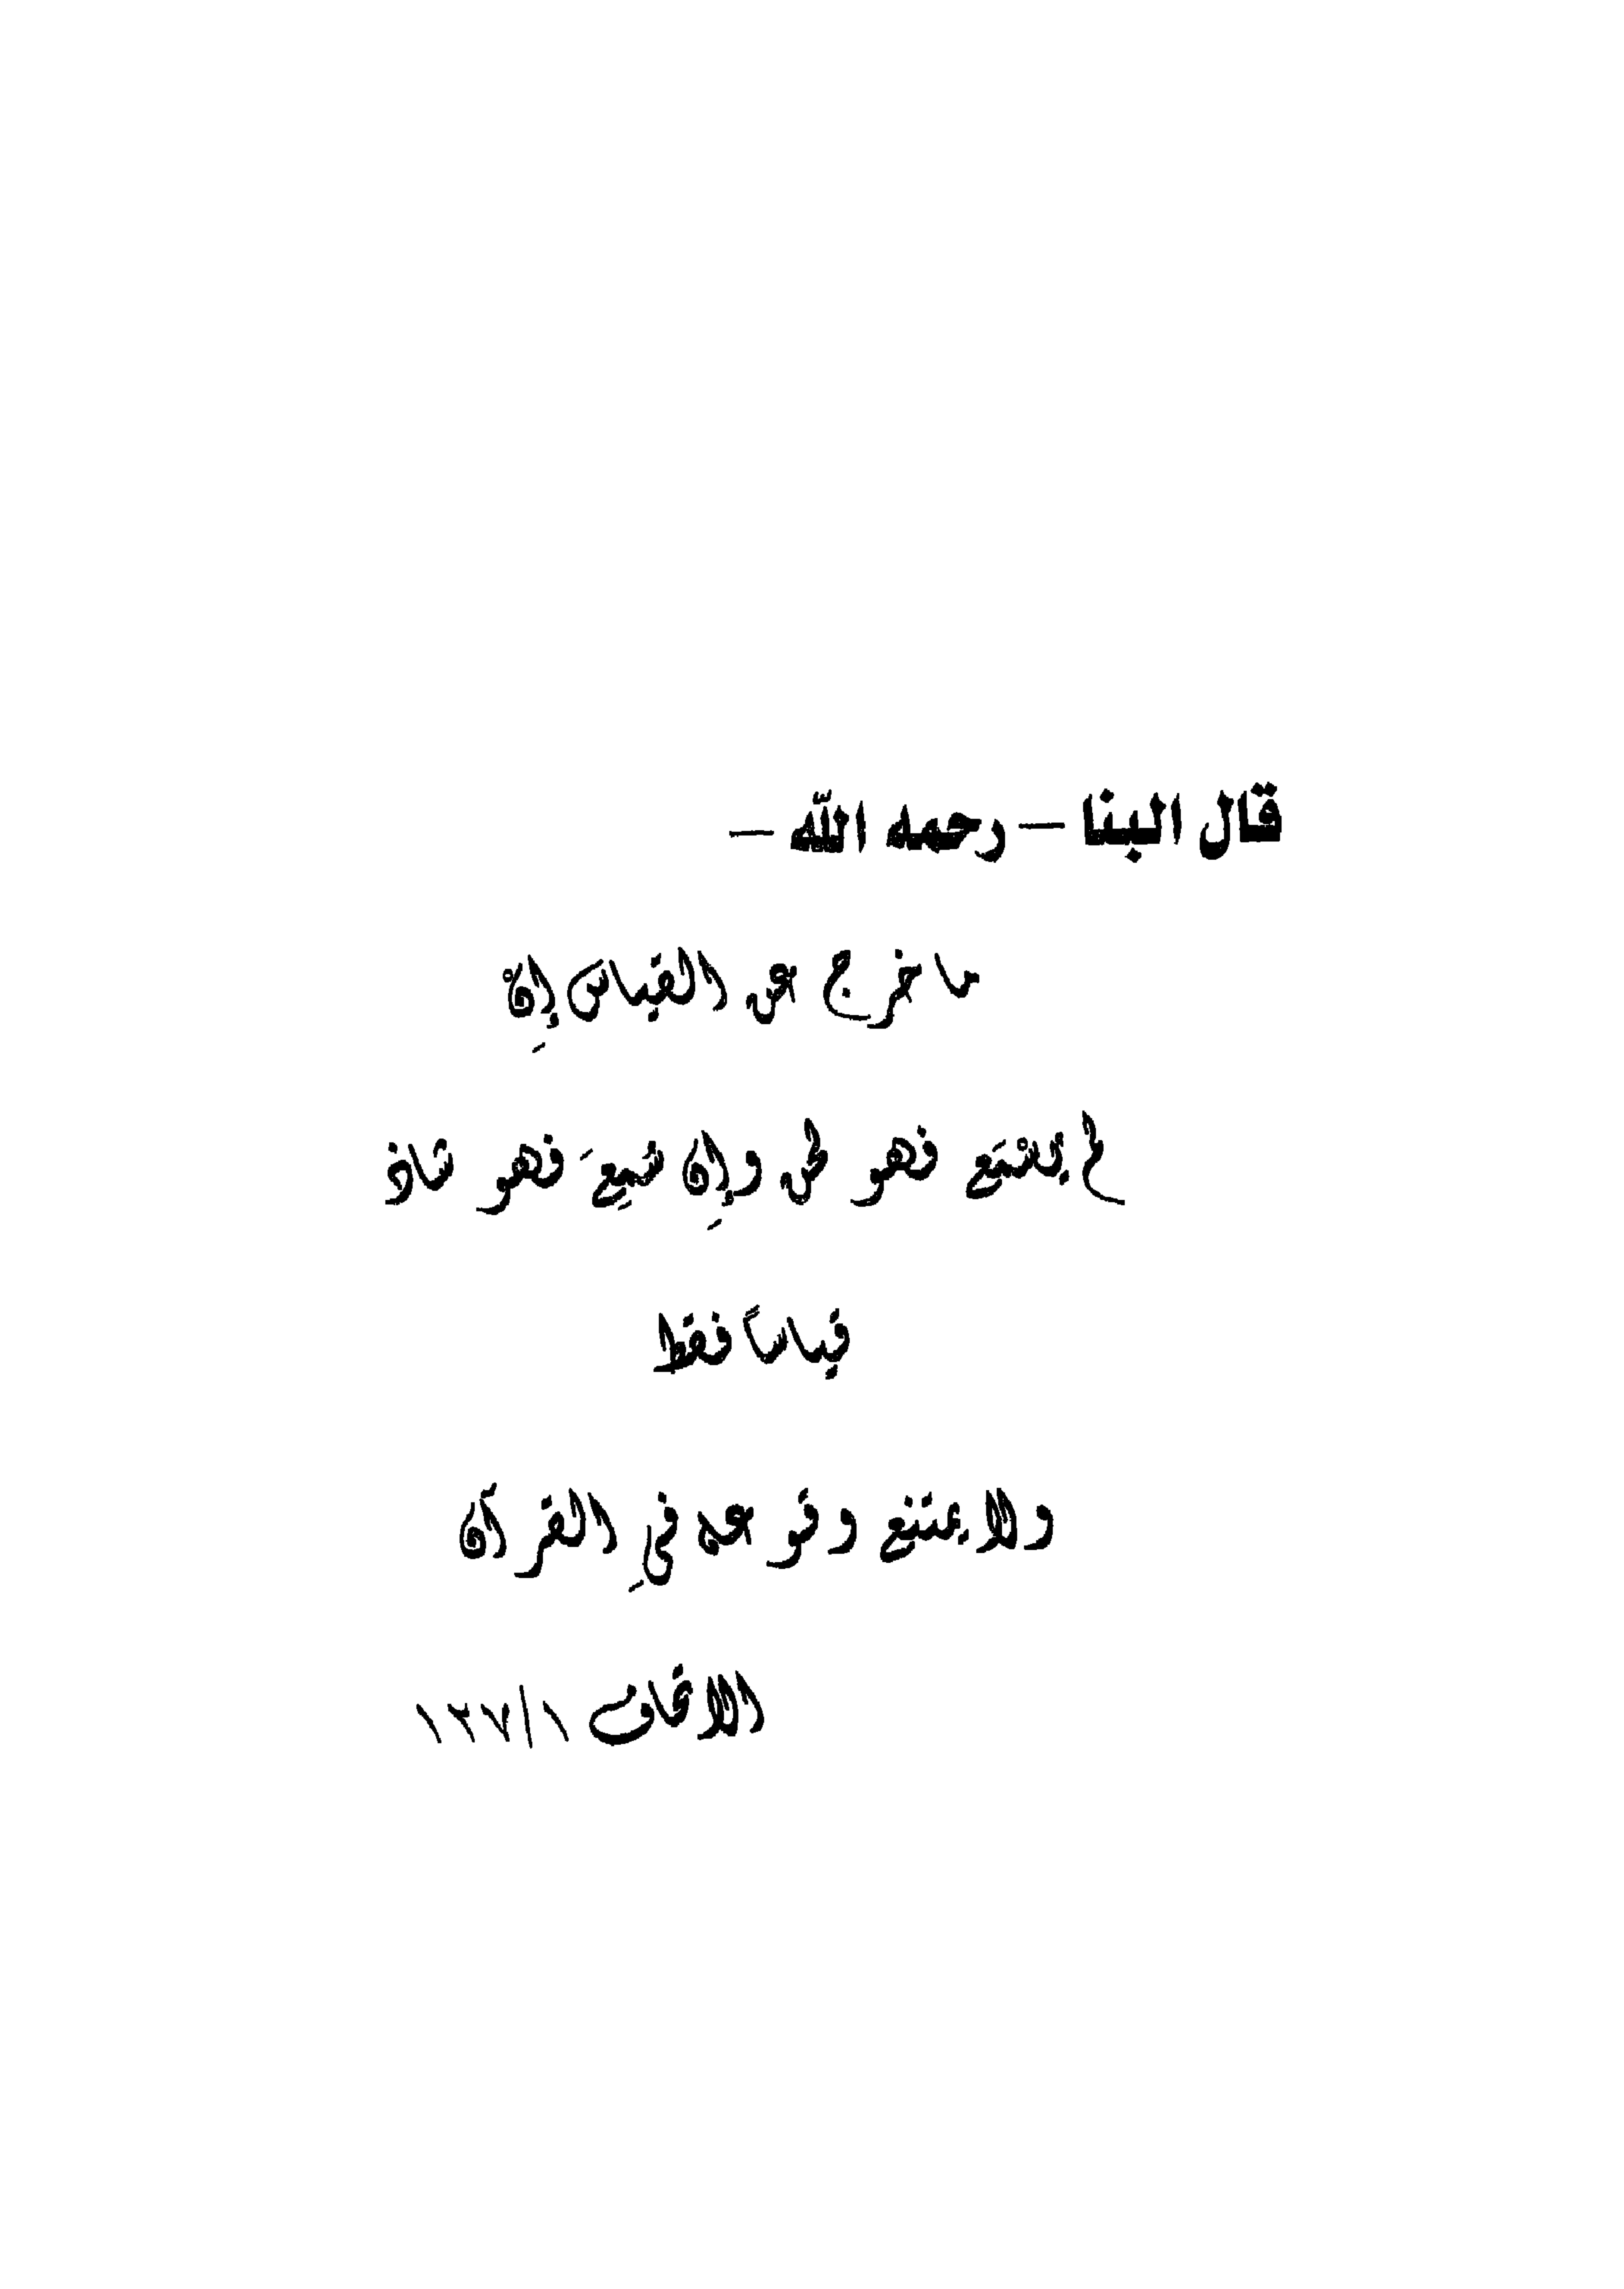 قال البنا – رحمه الله –
ما خرج عن القياس إِنْ
لم يُسْمَع فهو لحن وإِن سُمِعَ فهو شاذ
قياساً فقط
ولا يمتنع وقوعه فىِ القرآن
الاتحاف ١/١٢٧